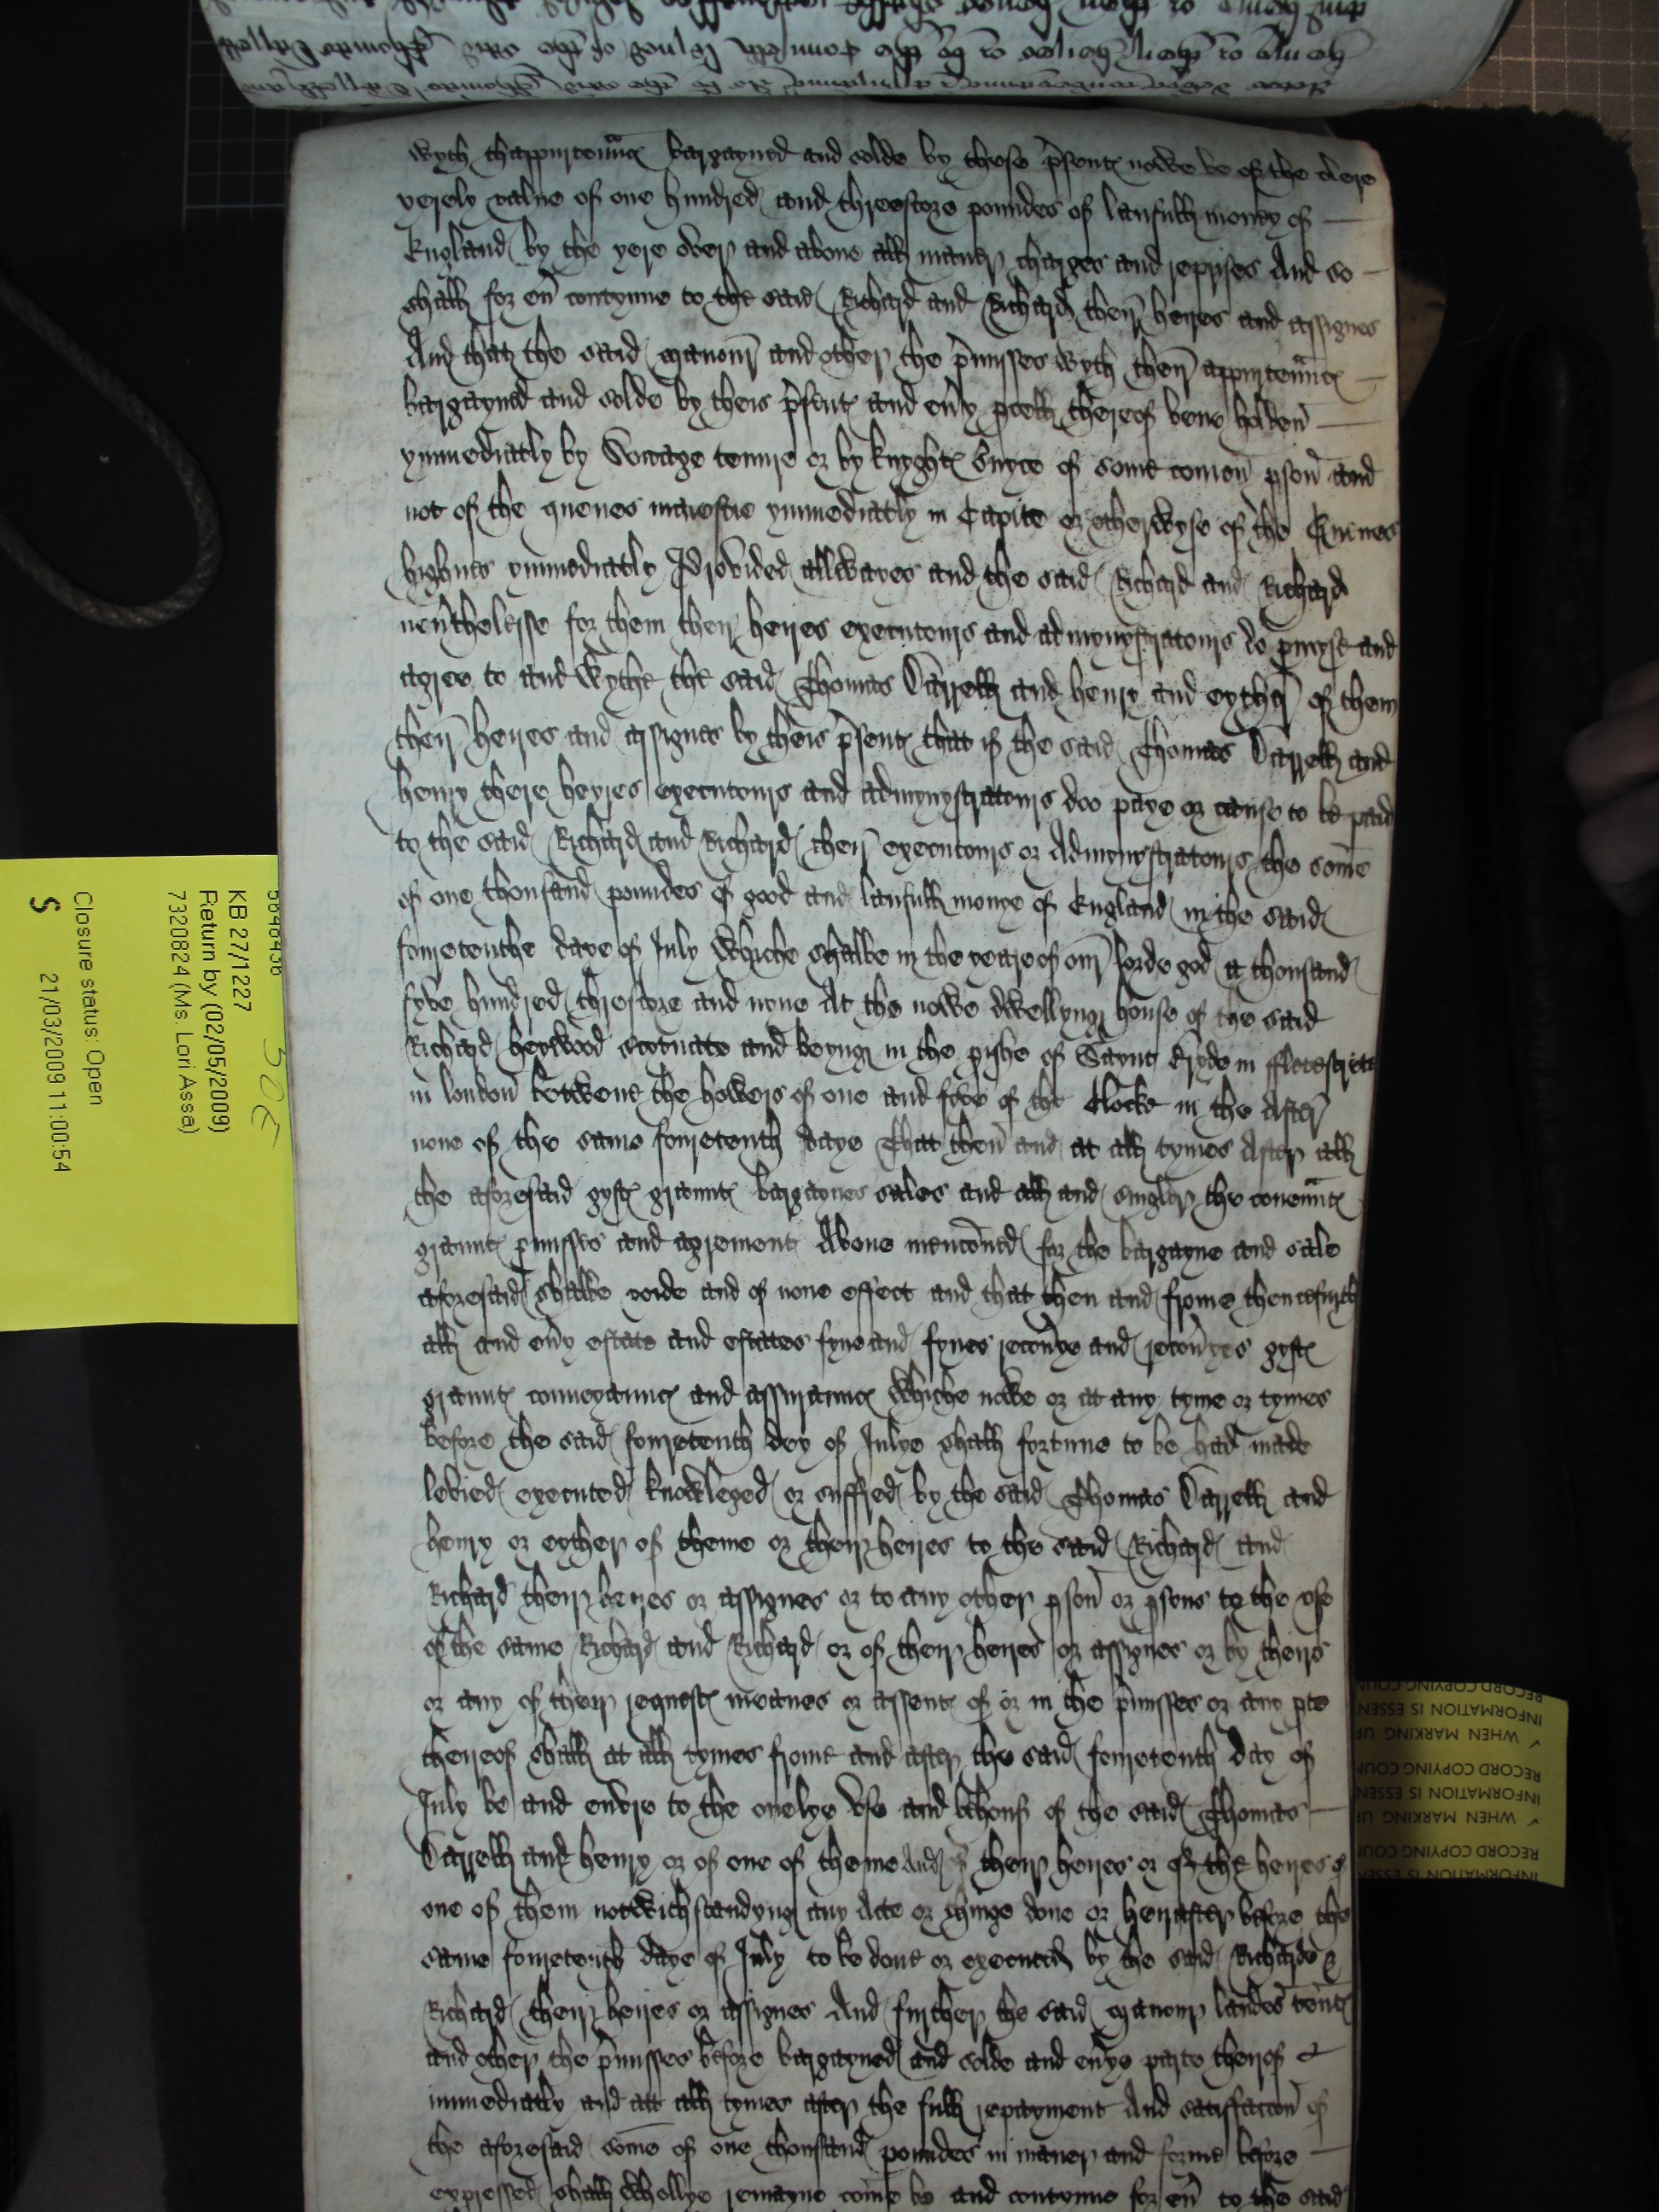 wyth thappurtennñc bargayned and solde by these p'sents nowe be of the clere
yerely value of one hundred and threescore poundes of laufull money of
England by the yere over and above all maner charges and reprises And so
shall for eu' contynue to the said Richard and Richard their heires and assignes
And that the said manour and other the p'misses wyth their appurtennñc
bargayned and solde by theis p'sents and eu'y p'cell thereof bene holden
ymmediatly by Socage tenure or by knyghts s'uyce of some comon p'son and
not of the quenes maiestie ymmediatly in Capite or otherwyse of the Quenes
highnes ymmediatly Provided allwayes and the said Richard and Richard
neu'thelesse for them their heires executours and admynystratours do p'myse and
agree to and wythe the said Thomas Darrell and henry and eyther of them
their heires and assignes by theis p'sents that if the said Thomas Darrell and
henry there heyres executours and admynystratours doo paye or cause to be paid
to the said Richard and Richard their executours or Admynystratours the some
of one thousand poundes of good and laufull monye of England in the said
fouretenthe daye of July whiche shalbe in the yeare of our lorde god a thousand
fyve hundred threscore and none At the nowe dwellyng house of the said
Richard heywood scytuate and beyng in the p'ishe of Saynt Bryde in ffletestrete
in london betwene the howers of one and fyve of the Clocke in the After
none of the same fouretenth daye That then and at all tymes After all
the aforesaid gyfts graunts bargaynes sales and all and singler the couennñts
graunts p'misses and agrement Above mencioned for the bargayne and sale
aforesaid shalbe voide and of none effect and that then and frome thencefurth
all and eu'y estate and estates fyne and fynes recou'ye and recou'yes gyfts
graunts conveyaunces and assuraunces whiche nowe or at any tyme or tymes
before the said fouretenth dey of Julye shall fortune to be had made
levied executed knowleged or suffred by the said Thomas Darrell and
henry or eyther of theme or their heires to the said Richard and
Richard their heires or assignes or to any other p'son or p'sons to the use
of the same Richard and Richard or of their heires or assignes or by theirs
or any of their requests meanes or assents of or in the p'misses or any p'te
thereof shall at all tymes frome and after the said fouretenth day of
July be and endure to the onelye use and behouf of the said Thomas
Darrell and henry or of one of theme And of their heires or of the heires of
one of them notwithstandyng any Acte or thinge done or herafter before the
same fouretenth daye of July to be done or executed by the said Richarde &
Richard their heires or assignes And further the said manour landes ten'ts
and other the p'misses before bargayned and solde and eu'ye parte therof
immediatly and att all tymes after the full repayment And satisfaccion of
the aforesaid some of one thousand poundes in maner and forme before
expressed shall whollye remayne come be and contynue for eu' to the said
KB 27/1227
Return by (02/05/2009)
7320824 (Ms. Lori Assa)
Closure status: Open
S 21/03/2009 11:00:54
RECORD COPYING
✓ WHEN MARKING UP
INFORMATION IS ESSEN
RECORD COPYING COUN
✓ WHEN MARKING UP
INFORMATION IS ESSEN
RECORD COPYING COUN